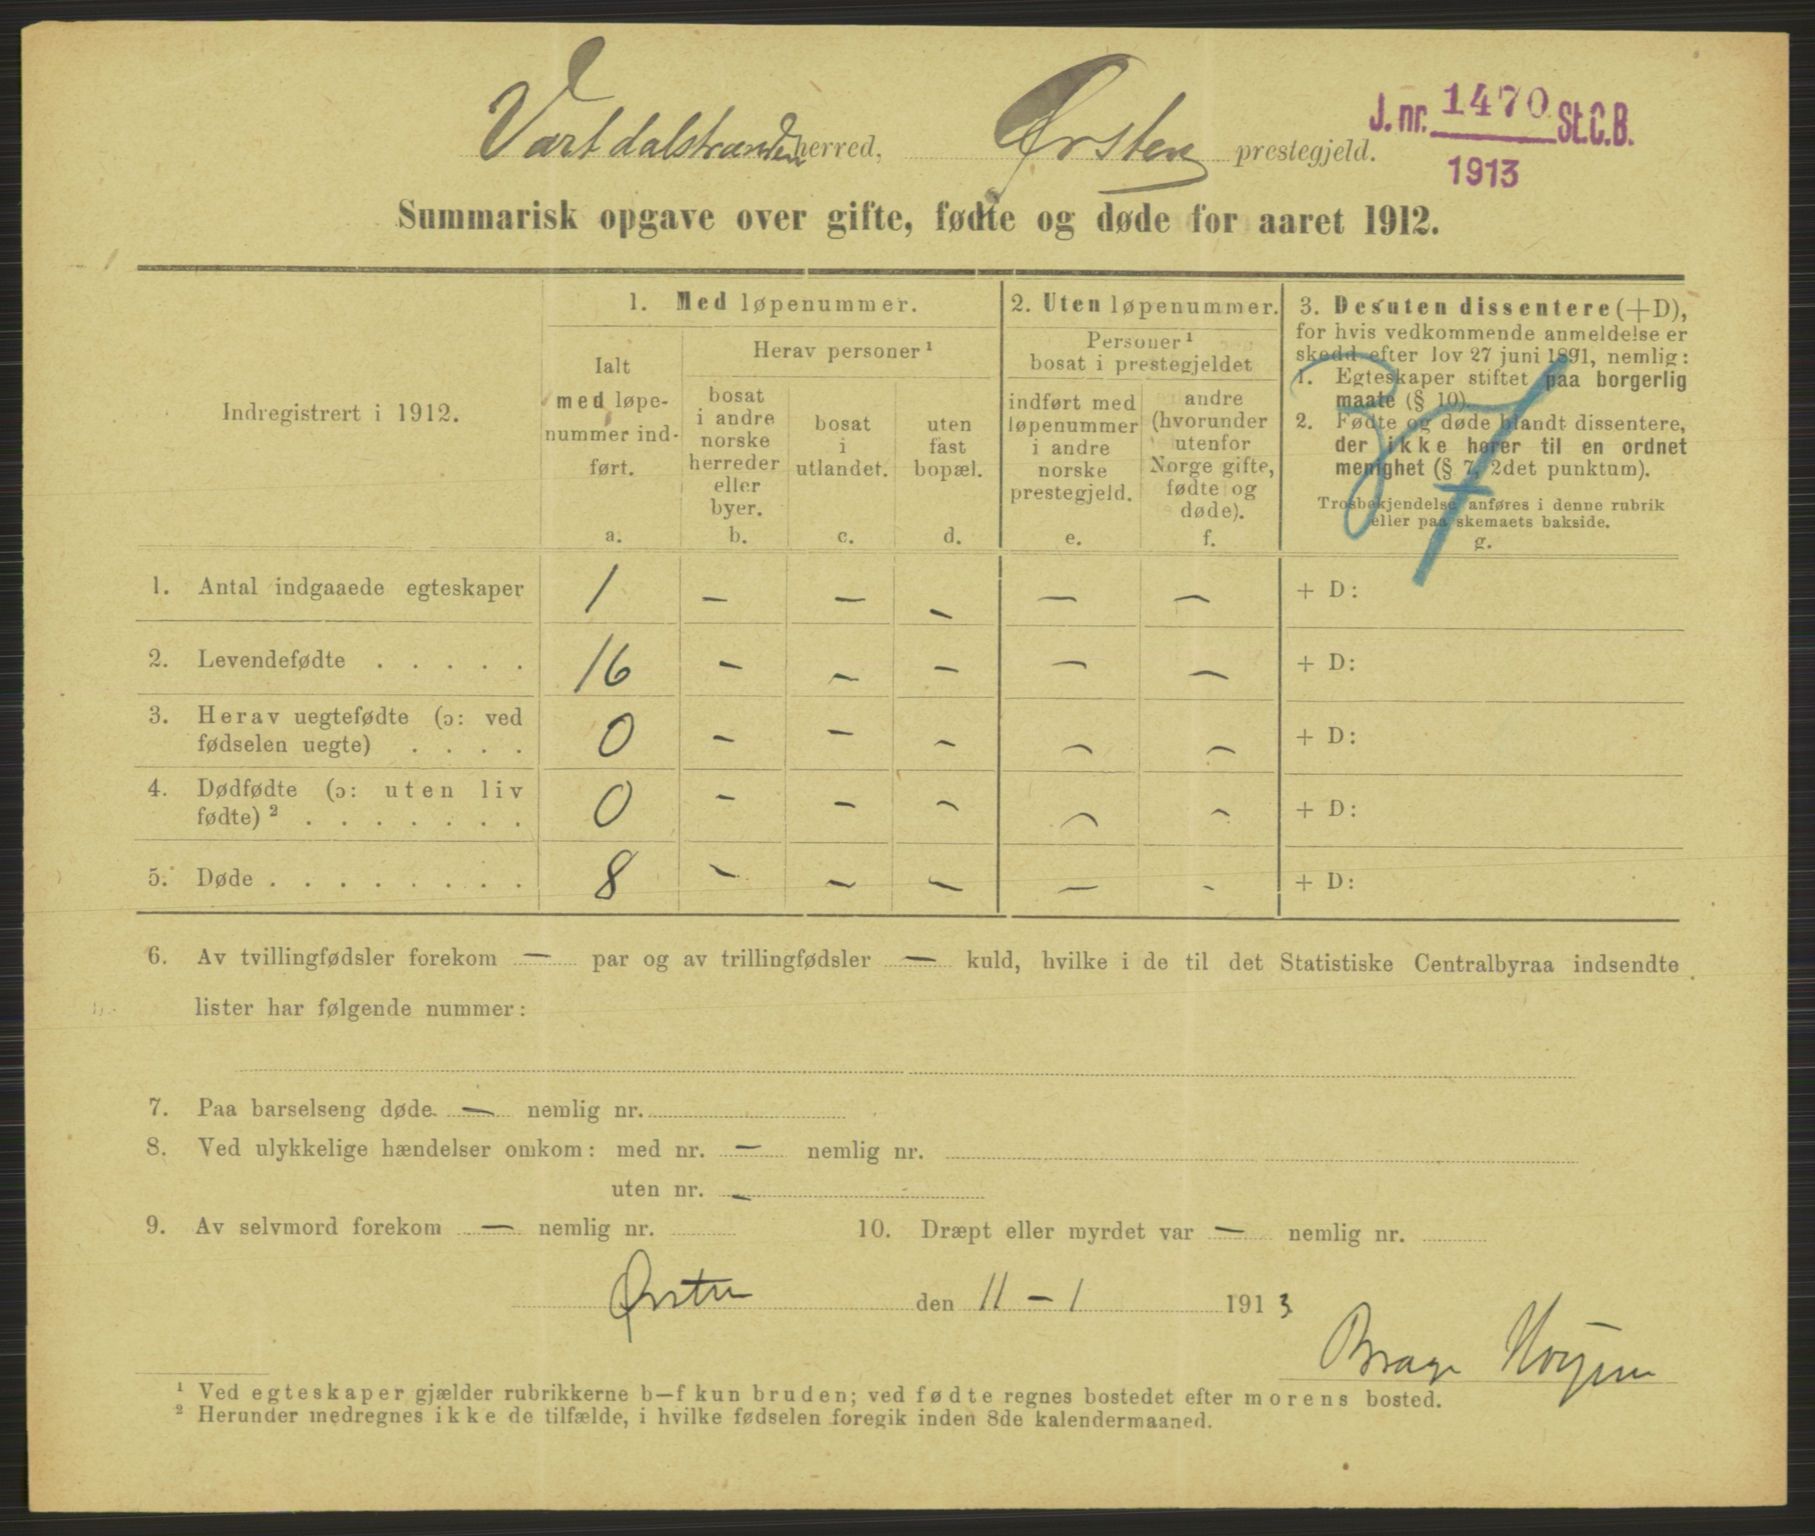 Vartdalstranden herred, Ørsten prestegjeld.
J. nr. 1470 St.C.B.
1913
Summarisk opgave over gifte, fødte og døde for aaret 1912.
Indregistrert i 1912.
1. Med løpenummer.
Ialt
med løpe-
nummer ind-
ført.
a.
Herav personer ¹
bosat
i andre
norske
herreder
eller
byer.
b.
bosat
i
utlandet.
c.
uten
fast
bopæl.
d.
2. Uten løpenummer.
Personer ¹
bosat i prestegjeldet
indført med
løpenummer
i andre
norske
prestegjeld.
e.
andre
(hvorunder
utenfor
Norge gifte,
fødte og
døde).
f.
3. Desuten dissentere (+D),
for hvis vedkommende anmeldelse er
skedd efter lov 27 juni 1891, nemlig:
1. Egteskaper stiftet paa borgerlig
maate (§ 10)
2. Fødte og døde blandt dissentere,
der ikke hører til en ordnet
menighet (§ 7, 2det punktum).
Trosbekjendelse anføres i denne rubrik
eller paa skemaets bakside.
g.
37
1. Antal indgaaede egteskaper 1 – – – – – + D:
2. Levendefødte . . . . . 16 – – – – – + D:
3. Herav uegtefødte (ɔ: ved
fødselen uegte) . . . . 0 – – – – – + D:
4. Dødfødte (ɔ: uten liv
fødte) ² . . . . . . . 0 – – – – – + D:
5. Døde . . . . . . . . 8 – – – – – + D:
6. Av tvillingfødsler forekom – par og av trillingfødsler – kuld, hvilke i de til det Statistiske Centralbyraa indsendte
lister har følgende nummer:
7. Paa barselseng døde – nemlig nr.
8. Ved ulykkelige hændelser omkom: med nr. – nemlig nr.
uten nr. –
9. Av selvmord forekom – nemlig nr. 10. Dræpt eller myrdet var – nemlig nr.
Ørsten den 11 – 1 1913
¹ Ved egteskaper gjælder rubrikkerne b–f kun bruden; ved fødte regnes bostedet efter morens bosted.
² Herunder medregnes ikke de tilfælde, i hvilke fødselen foregik inden 8de kalendermaaned.